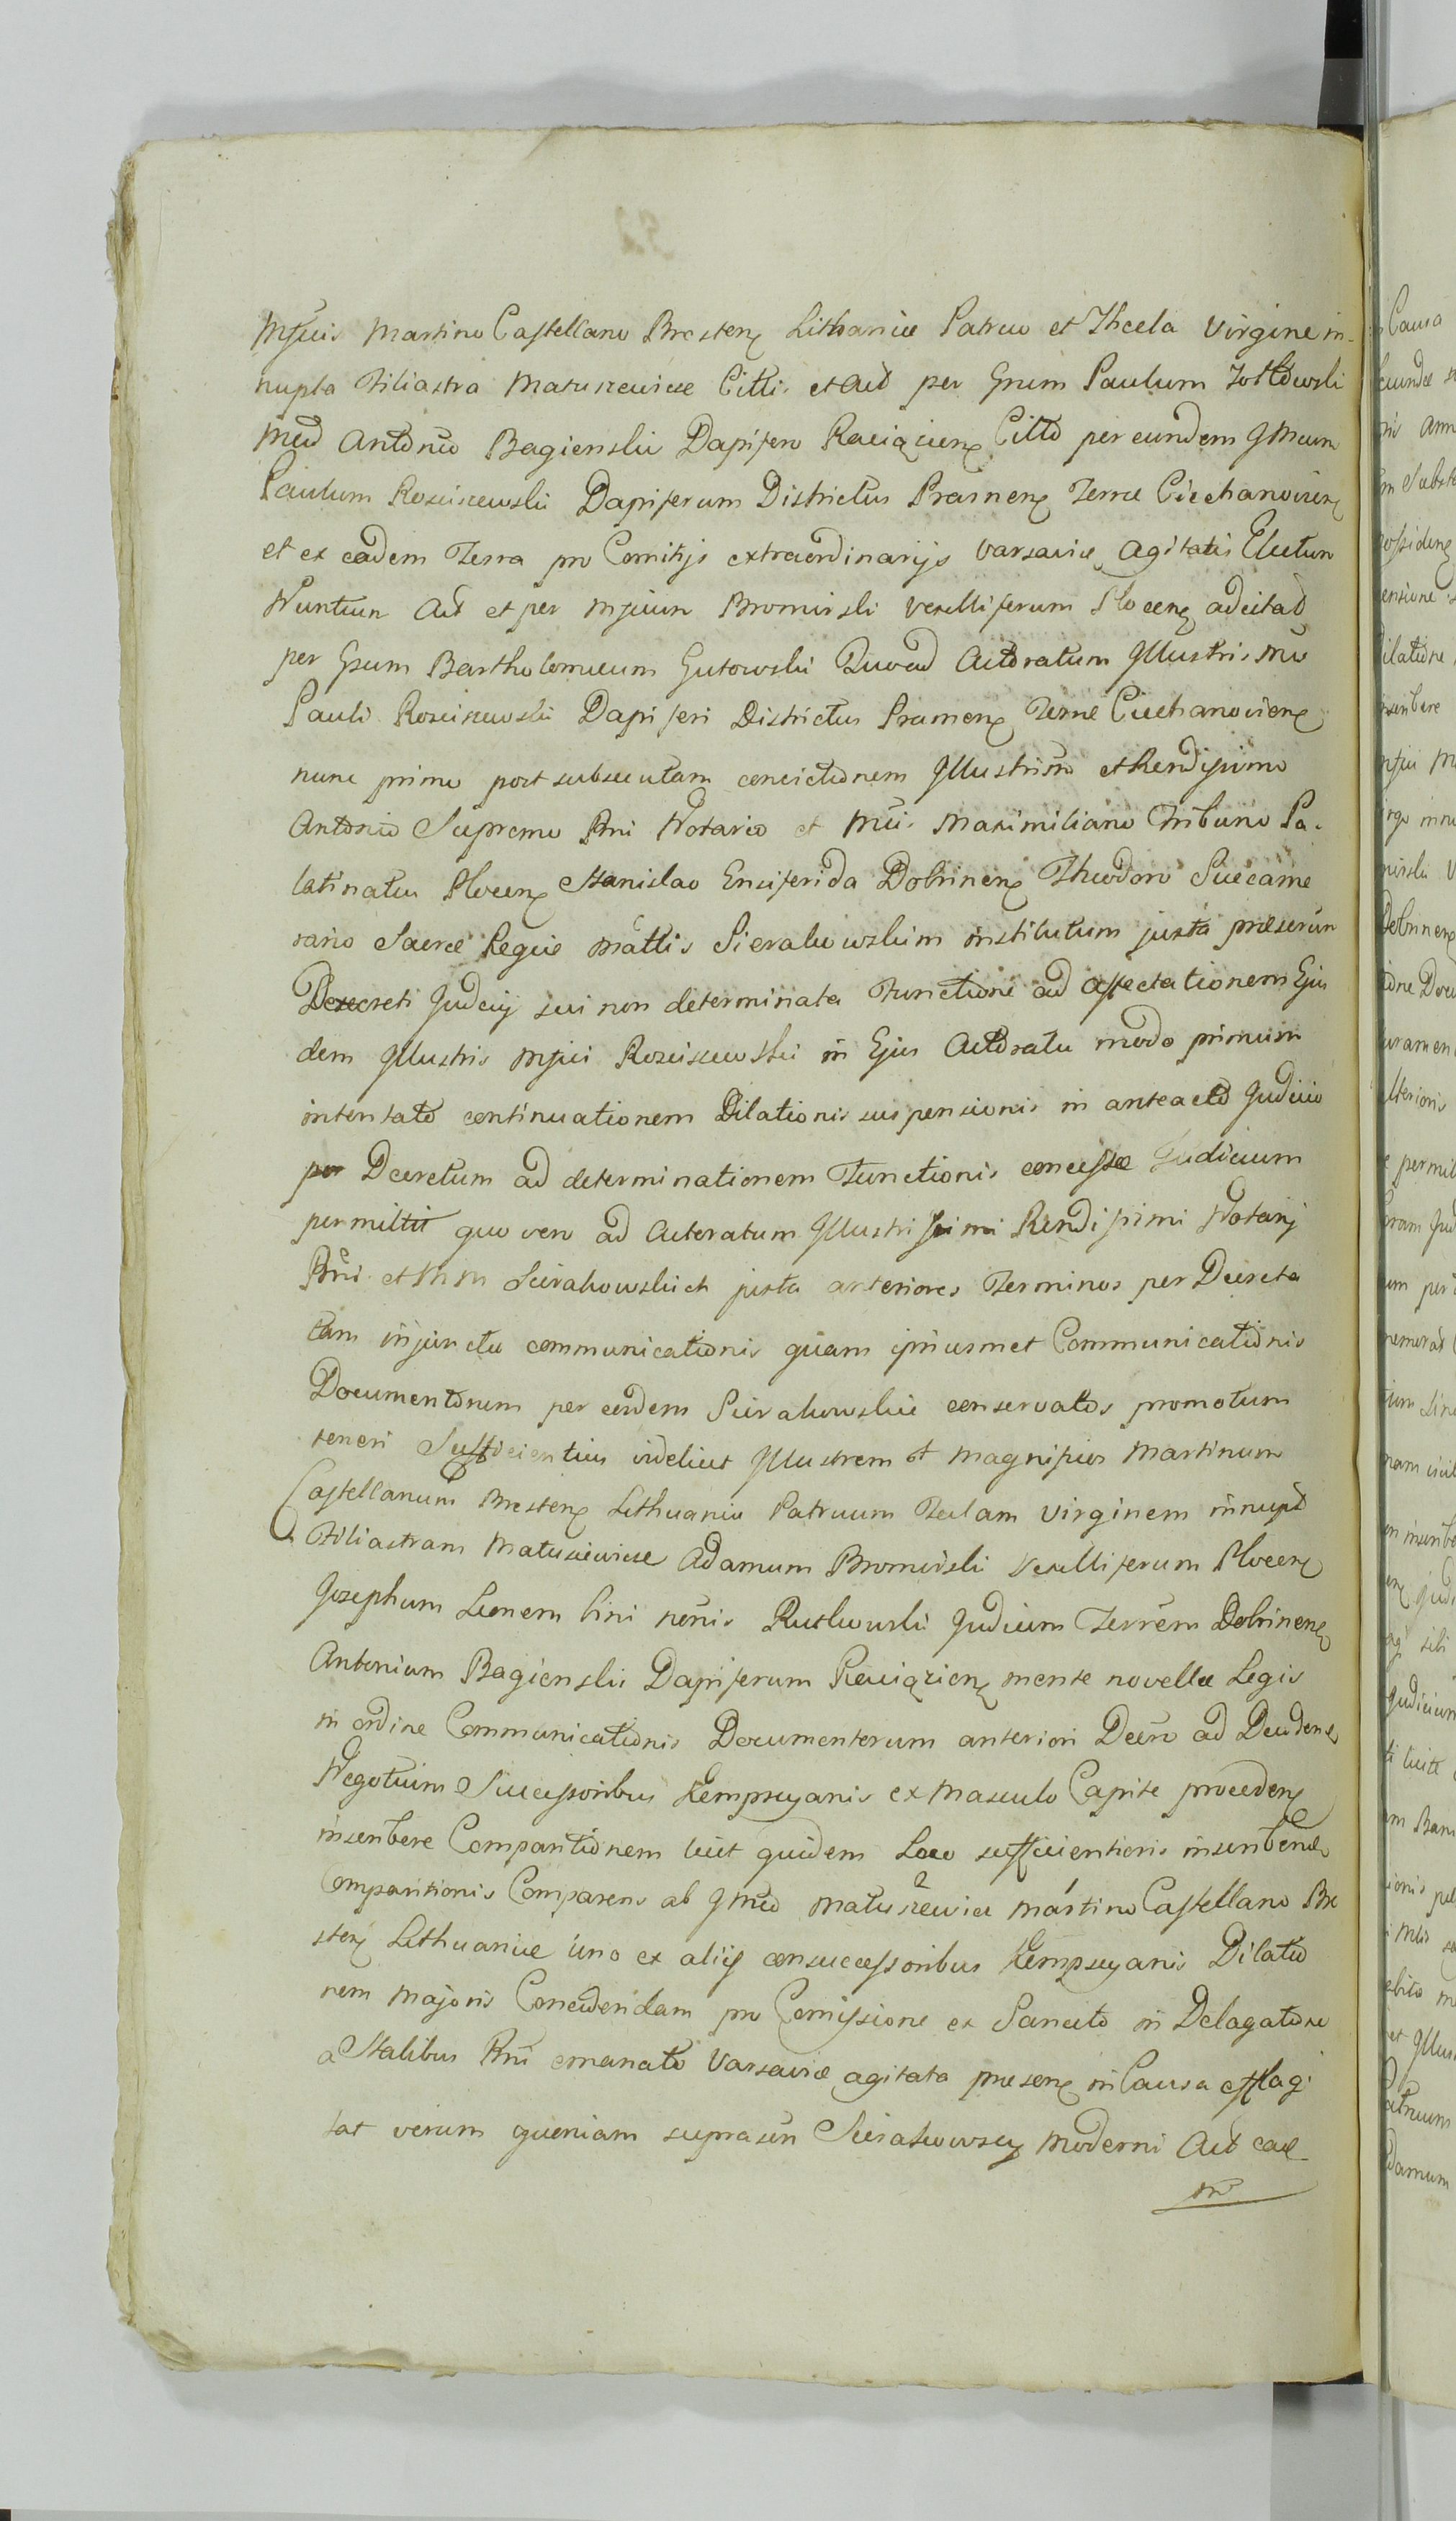 Mfficis Martino Castellano Brestenꝫ Lithaniæ Patruo et Theela Virgine in-
nupta Filiastra Matuszewicze Cittis et Act per Gnum Paulum Zołtowski
Mco Antonio Bagienski Dapifero Raciązienꝫ Citto per eundem G Mcum
Paulum Rosciszewski Dapiferum Districtus Prasnenꝫ Terræ Ciechanoviensꝫ
et ex eadem Terra pro Comitijs extraordinarijs Varsaviæ agitatis Electum
Nuntium Act et per Mficum Bromirski Vexilliferum Plocenꝫ adcitato
per Gsum Bartholomæum Gutowski Quoad Actoratum Illustris Mci
Pauli Rosciszewski Dapiferi Districtus Prasnenꝫ Terræ Ciechanovienꝫ
nunc primo post subsecutam convictionem Illustrismo et Rendissimo
Antonio Supremo Rni Notario et Mcis Maximiliano Tribuno Pa-
latinatus Plocenꝫ Stanislao Ensiferida Dobrinenꝫ Theodoro Succame
rario Sacræ Regiæ Mattis Sierakowskim institutum juxta præscrim
Decreti Judicij sui non determinata Functione ad affectationem Ejus
dem Illustris Mfici Rosciszewski in Ejus Actoratu modo primum
intentato continuationem Dilationis suspensionis in anteacto Judicio
per Decretum ad determinationem Functionis concessæ Judicium
permittit quo vero ad Actoratum Illustrissimi Rendissimi Notarij
Rni et M M Sierakowskich juxta anteriores Terminos per Decreta
tam injunctæ communicationis quam ipsiusmet Communicationis
Documentorum per eosdem Sierakowskie conservatos promotum
teneri Sufficientius videlicet Illustrem et Magnificos Martinum
Castellanum Brestenꝫ Lithuaniæ Patruum Teclam Virginem innupt
Filiastram Matuszewicze Adamum Bromirski Vexilliferum Plocenꝫ
Josephum Leonem bini nōnis Rutkowski Judicem Terrem Dobrinenꝫ
Antonium Bagienski Dapiferum Raciązienꝫ mente novellæ Legis
in ordine Communicationis Documentorum anteriori Decro ad Decidenꝫ
Negotium Successoribus Kempscyanis ex Masculo Capite procedenꝫ
inscribere Comparitionem licet quidem Loco sufficientioris inscribenæ
Comparitionis Comparens ab G Mco Matuszewicz Martino Castellano Bre
stenꝫ Lithuaniæ uno ex alijs consuccessoribus Kempscyanis Dilatio
nem majoris Concedendam pro Comissione ex Sancito in Delagatione
a Stalibus Rni emanato Varsaviæ agitata præsenꝫ in Causa efflagi
tat verum quoniam suprascri Sierakowscy moderni Act eæ
m